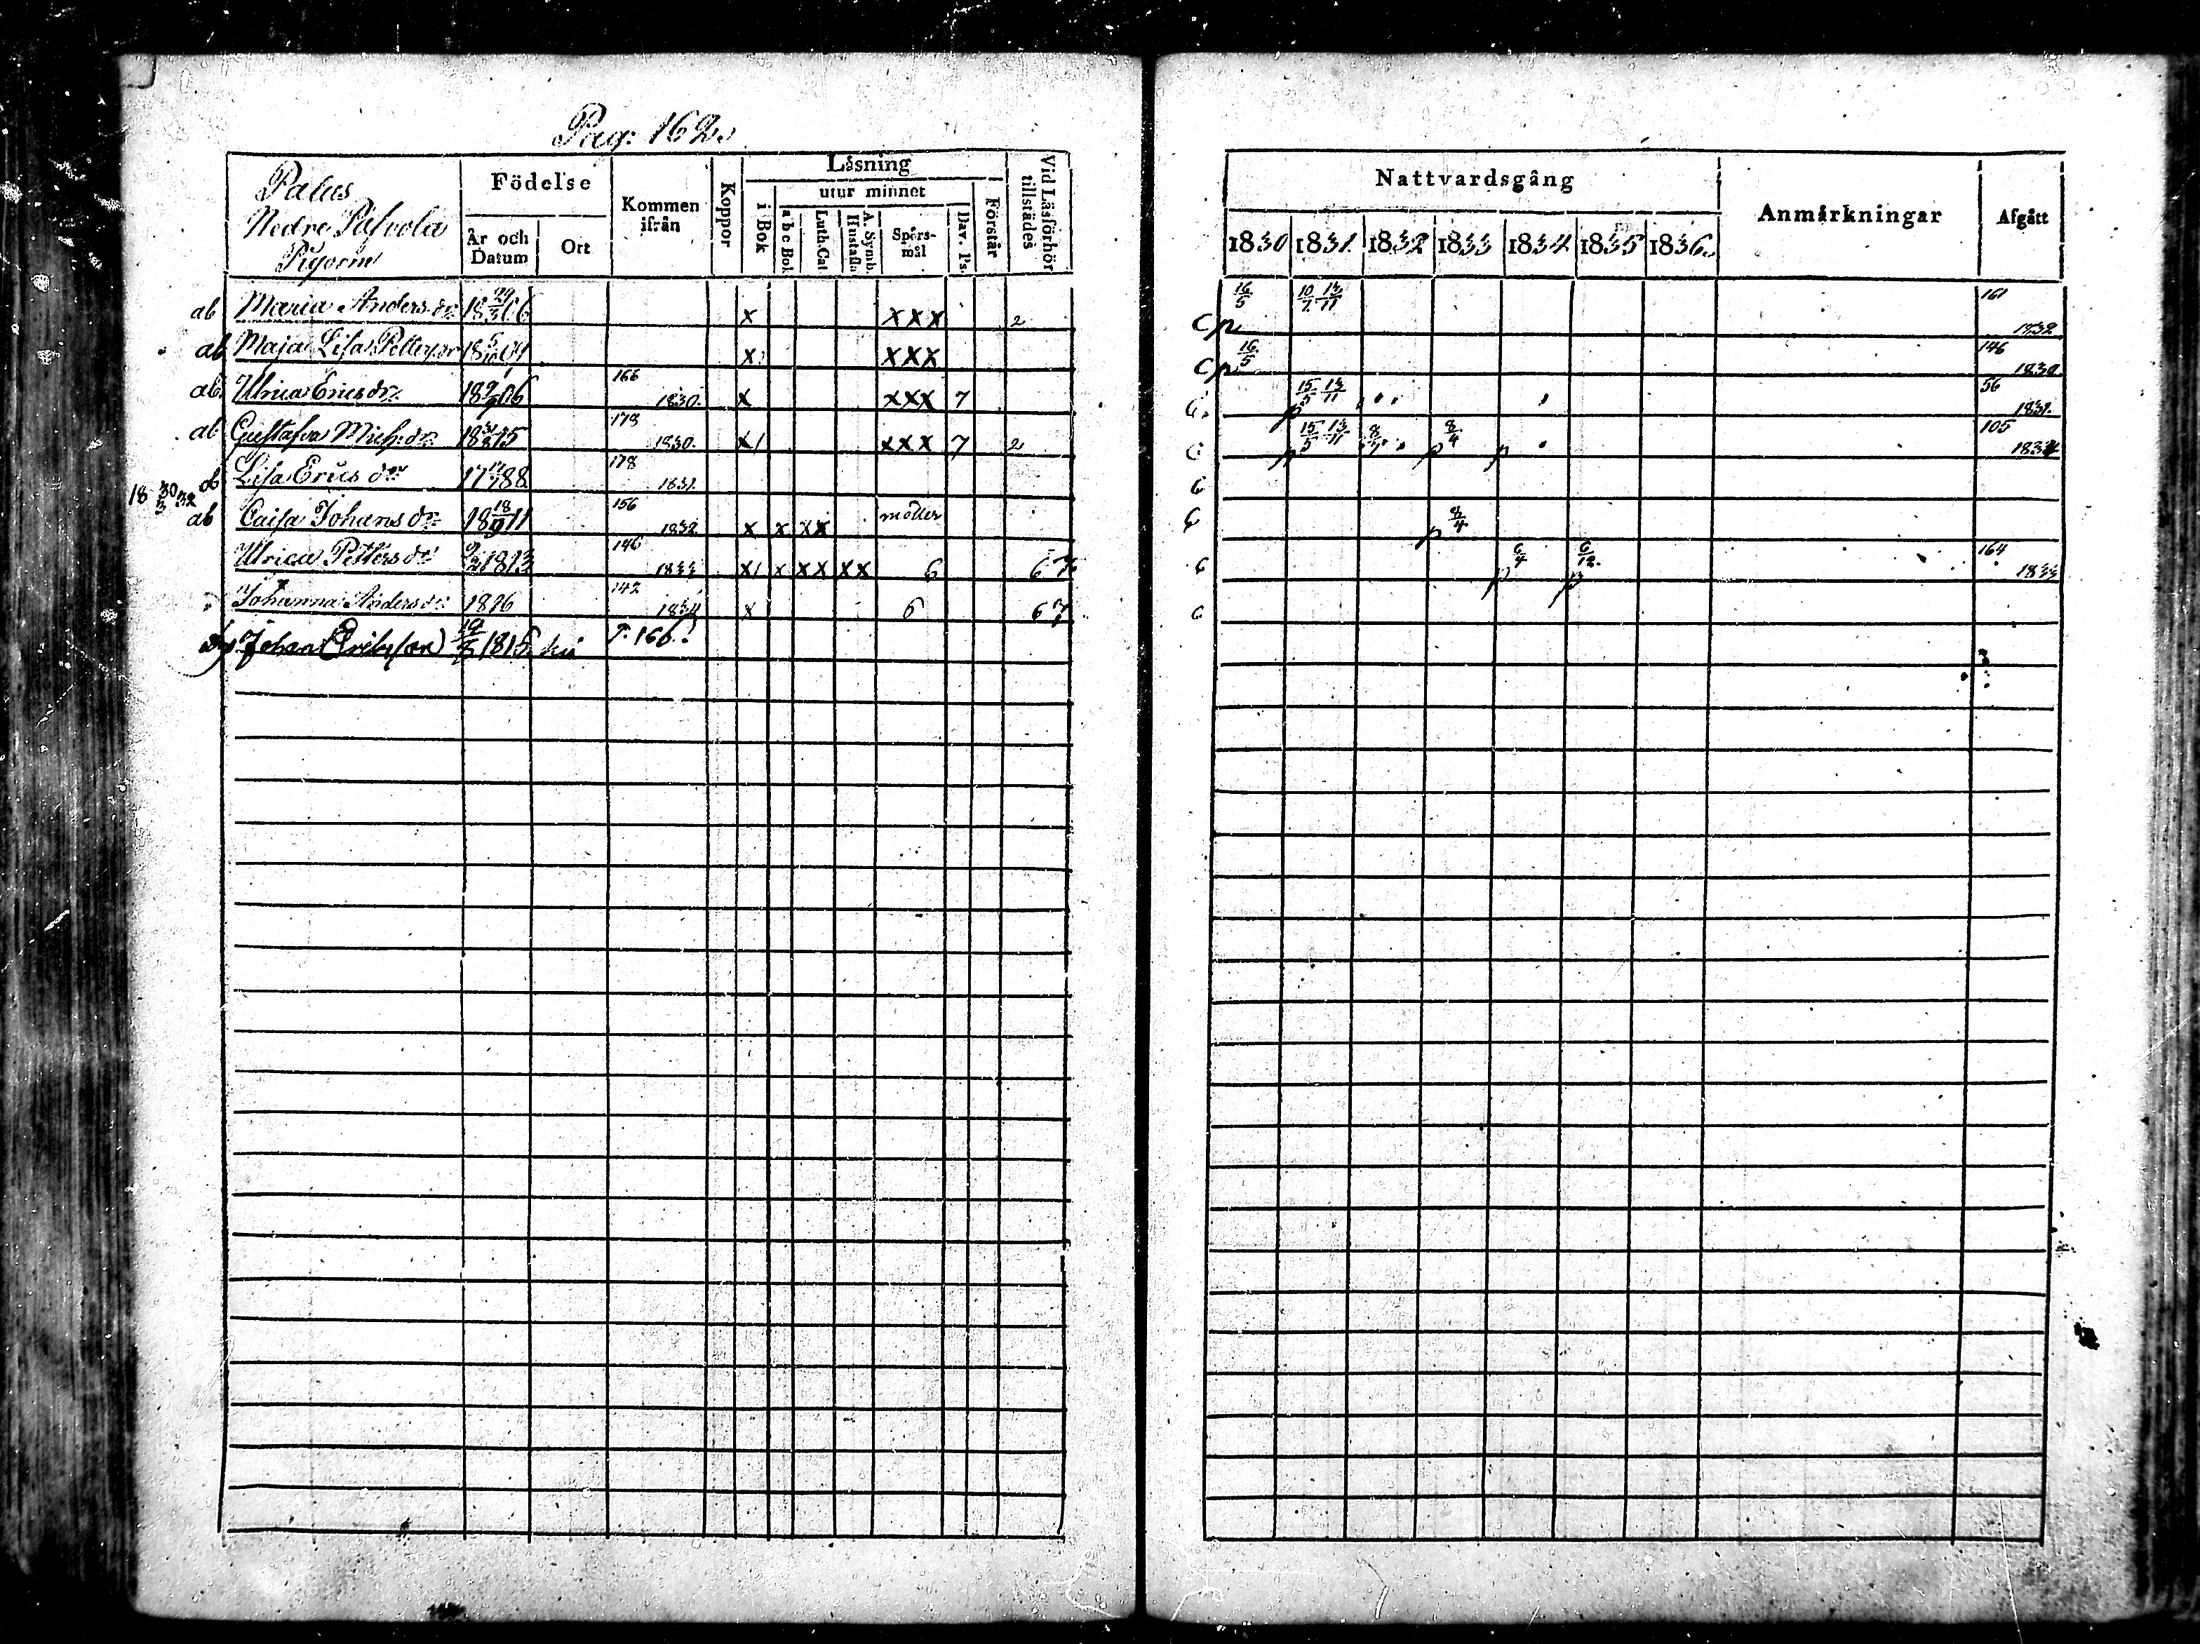 Pag: 162.
Palus
Nedre Påfvola
Pigorne
Födelse
År och Datum
Ort
Kommen ifrån
Koppor
Läsning
i Bok
utur minnet
a b c Bok
Luth. Cat
A. Symb. Hustafla
Spörsmål
Dav. Ps.
Förstår
Vid Läsförhör tillstädes
Nattvardsgång
1830 1831. 1832 1833 1834 1835 1836.
Anmärkningar
Afgått
ab Maria Anders dr 18 29/3 06 x xxx 2 Cp 16/5 10/7 13/11 161 1832
ab Maja Lisa Petters dr x xxx Cp 16/5 146 1830
ab Ulrica Erics dr 166 1830. x xxx 7 15/5 13/11 56 1831.
ab Gustafva Mich: dr 18 15 179 1830. x xxx 7 2 15/5 13/11 8/7 8/4 105 1834
ab Lisa Erics dr 17 88 178 1831.
18 30/3 32
ab Caisa Johans dr 18 18/9 11 156 1832 x x xx 8/4
Ulrica Petters dr 1813 146 1833 x x xx xx 6 6 6/4 6/12 164 1833
Johanna Anders dr 1816 142 1834 x 6 6
Johan Ericsson 1815 166